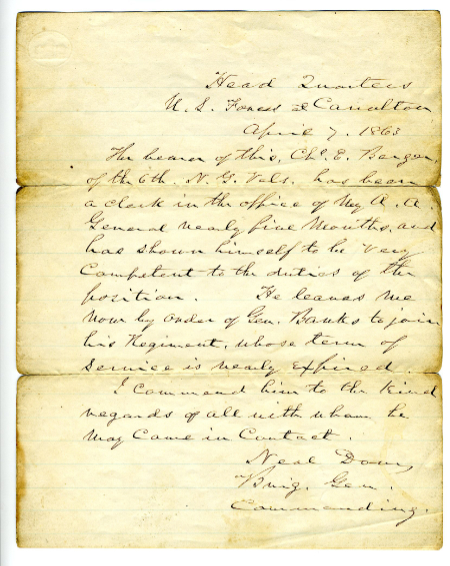 Head Quarters
U. S. Forces at Carrollton
April 7, 1863
The bearer of this, Chs. E. Bergen,
of the 6th. N. Y. Vols. has been
a clerk in the office of my A. A.
General nearly five months, and
has shown himself to be very
competent to the duties of the
position. He leaves me
now by order of Gen. Banks to join
his Regiment, whose term of
service is nearly expired.
I commend him to the kind
regards of all with whom he
may come in contact.
Neal Dow,
Brig. Gen.
Commanding.